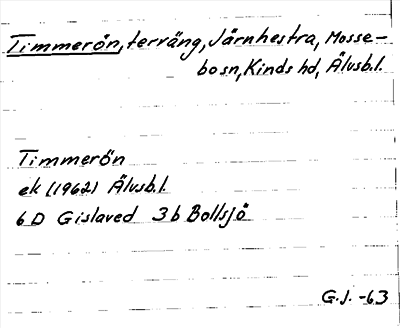 Timmerön, terräng, Järnhestra, Mosse-
bo sn, Kinds hd, Älvsb.l.
Timmerön
ek (1962) Älvsb.l.
6 D Gislaved 3 b Bollsjö
G.J. -63